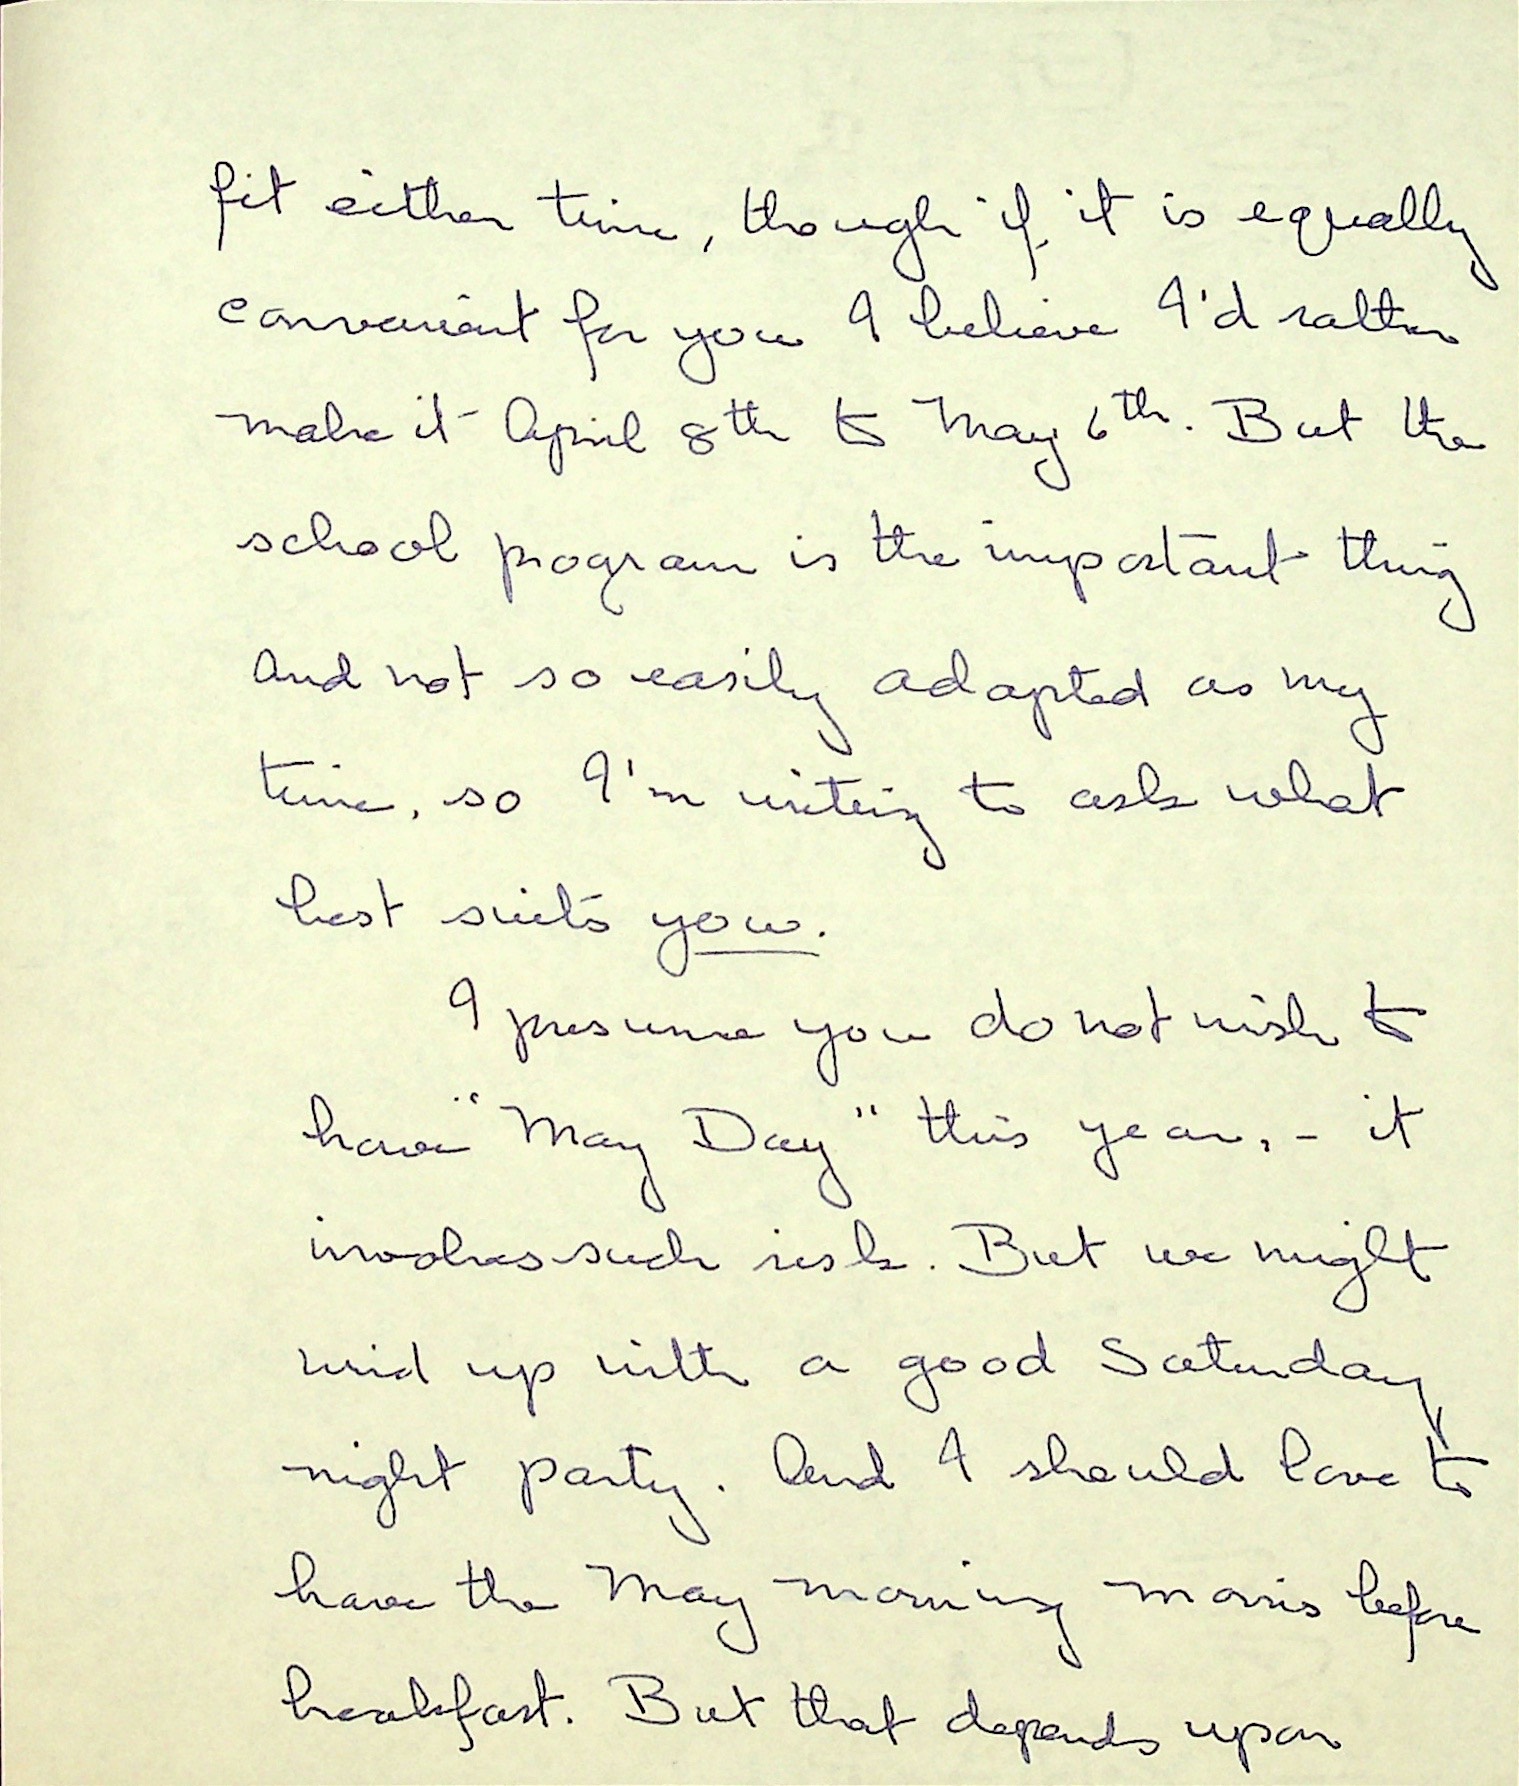 fit either time, though if it is equally
convenient for you I believe I'd rather
make it April 8th to May 6th. But the
school program is the important thing
and not so easily adapted as my
time, so I'm writing to ask what
best suits you.
I presume you do not wish to
have "May Day" this year, - it
involves such risk. But we might
wind up with a good Saturday
night party. And I should love to
have the May morning morris before
breakfast. But that depends upon